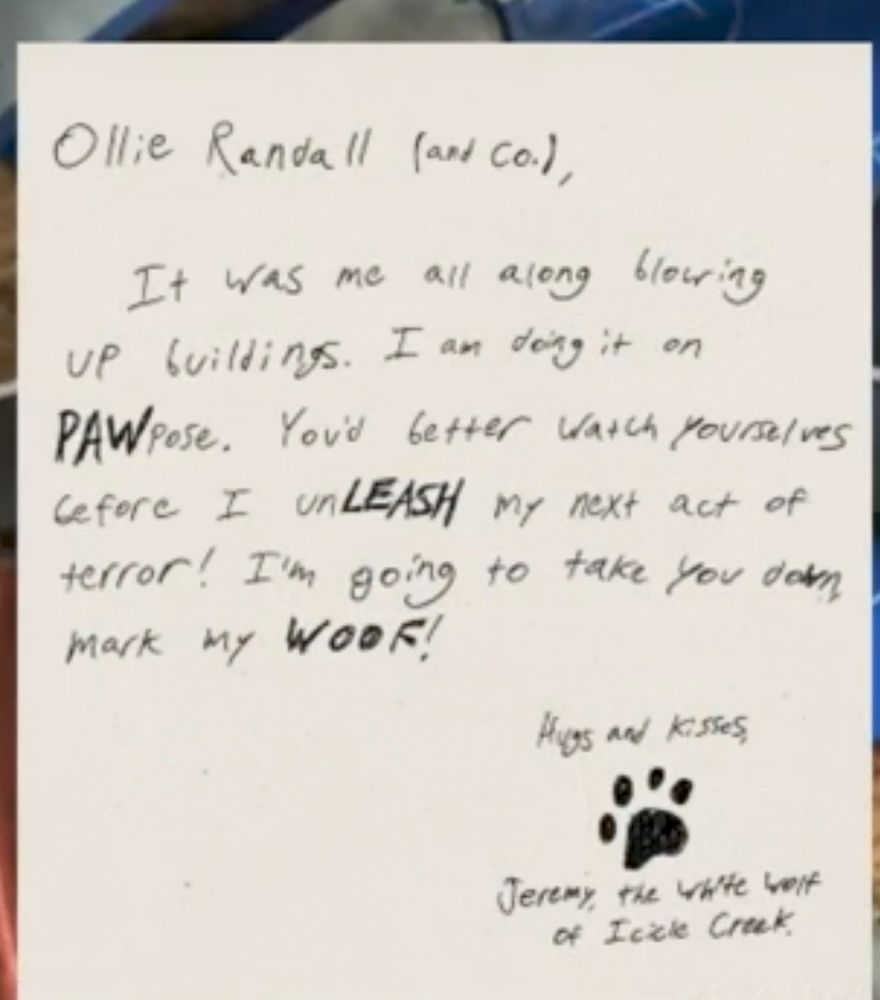 Ollie Randall (and Co.),
It was me all along blowing
up buildings. I am doing it on
PAWpose. You'd better watch yourselves
before I unLEASH my next act of
terror! I'm going to take you down,
mark my WOOF!
Hugs and Kisses,
Jeremy, the white wolf
of Icicle Creek.